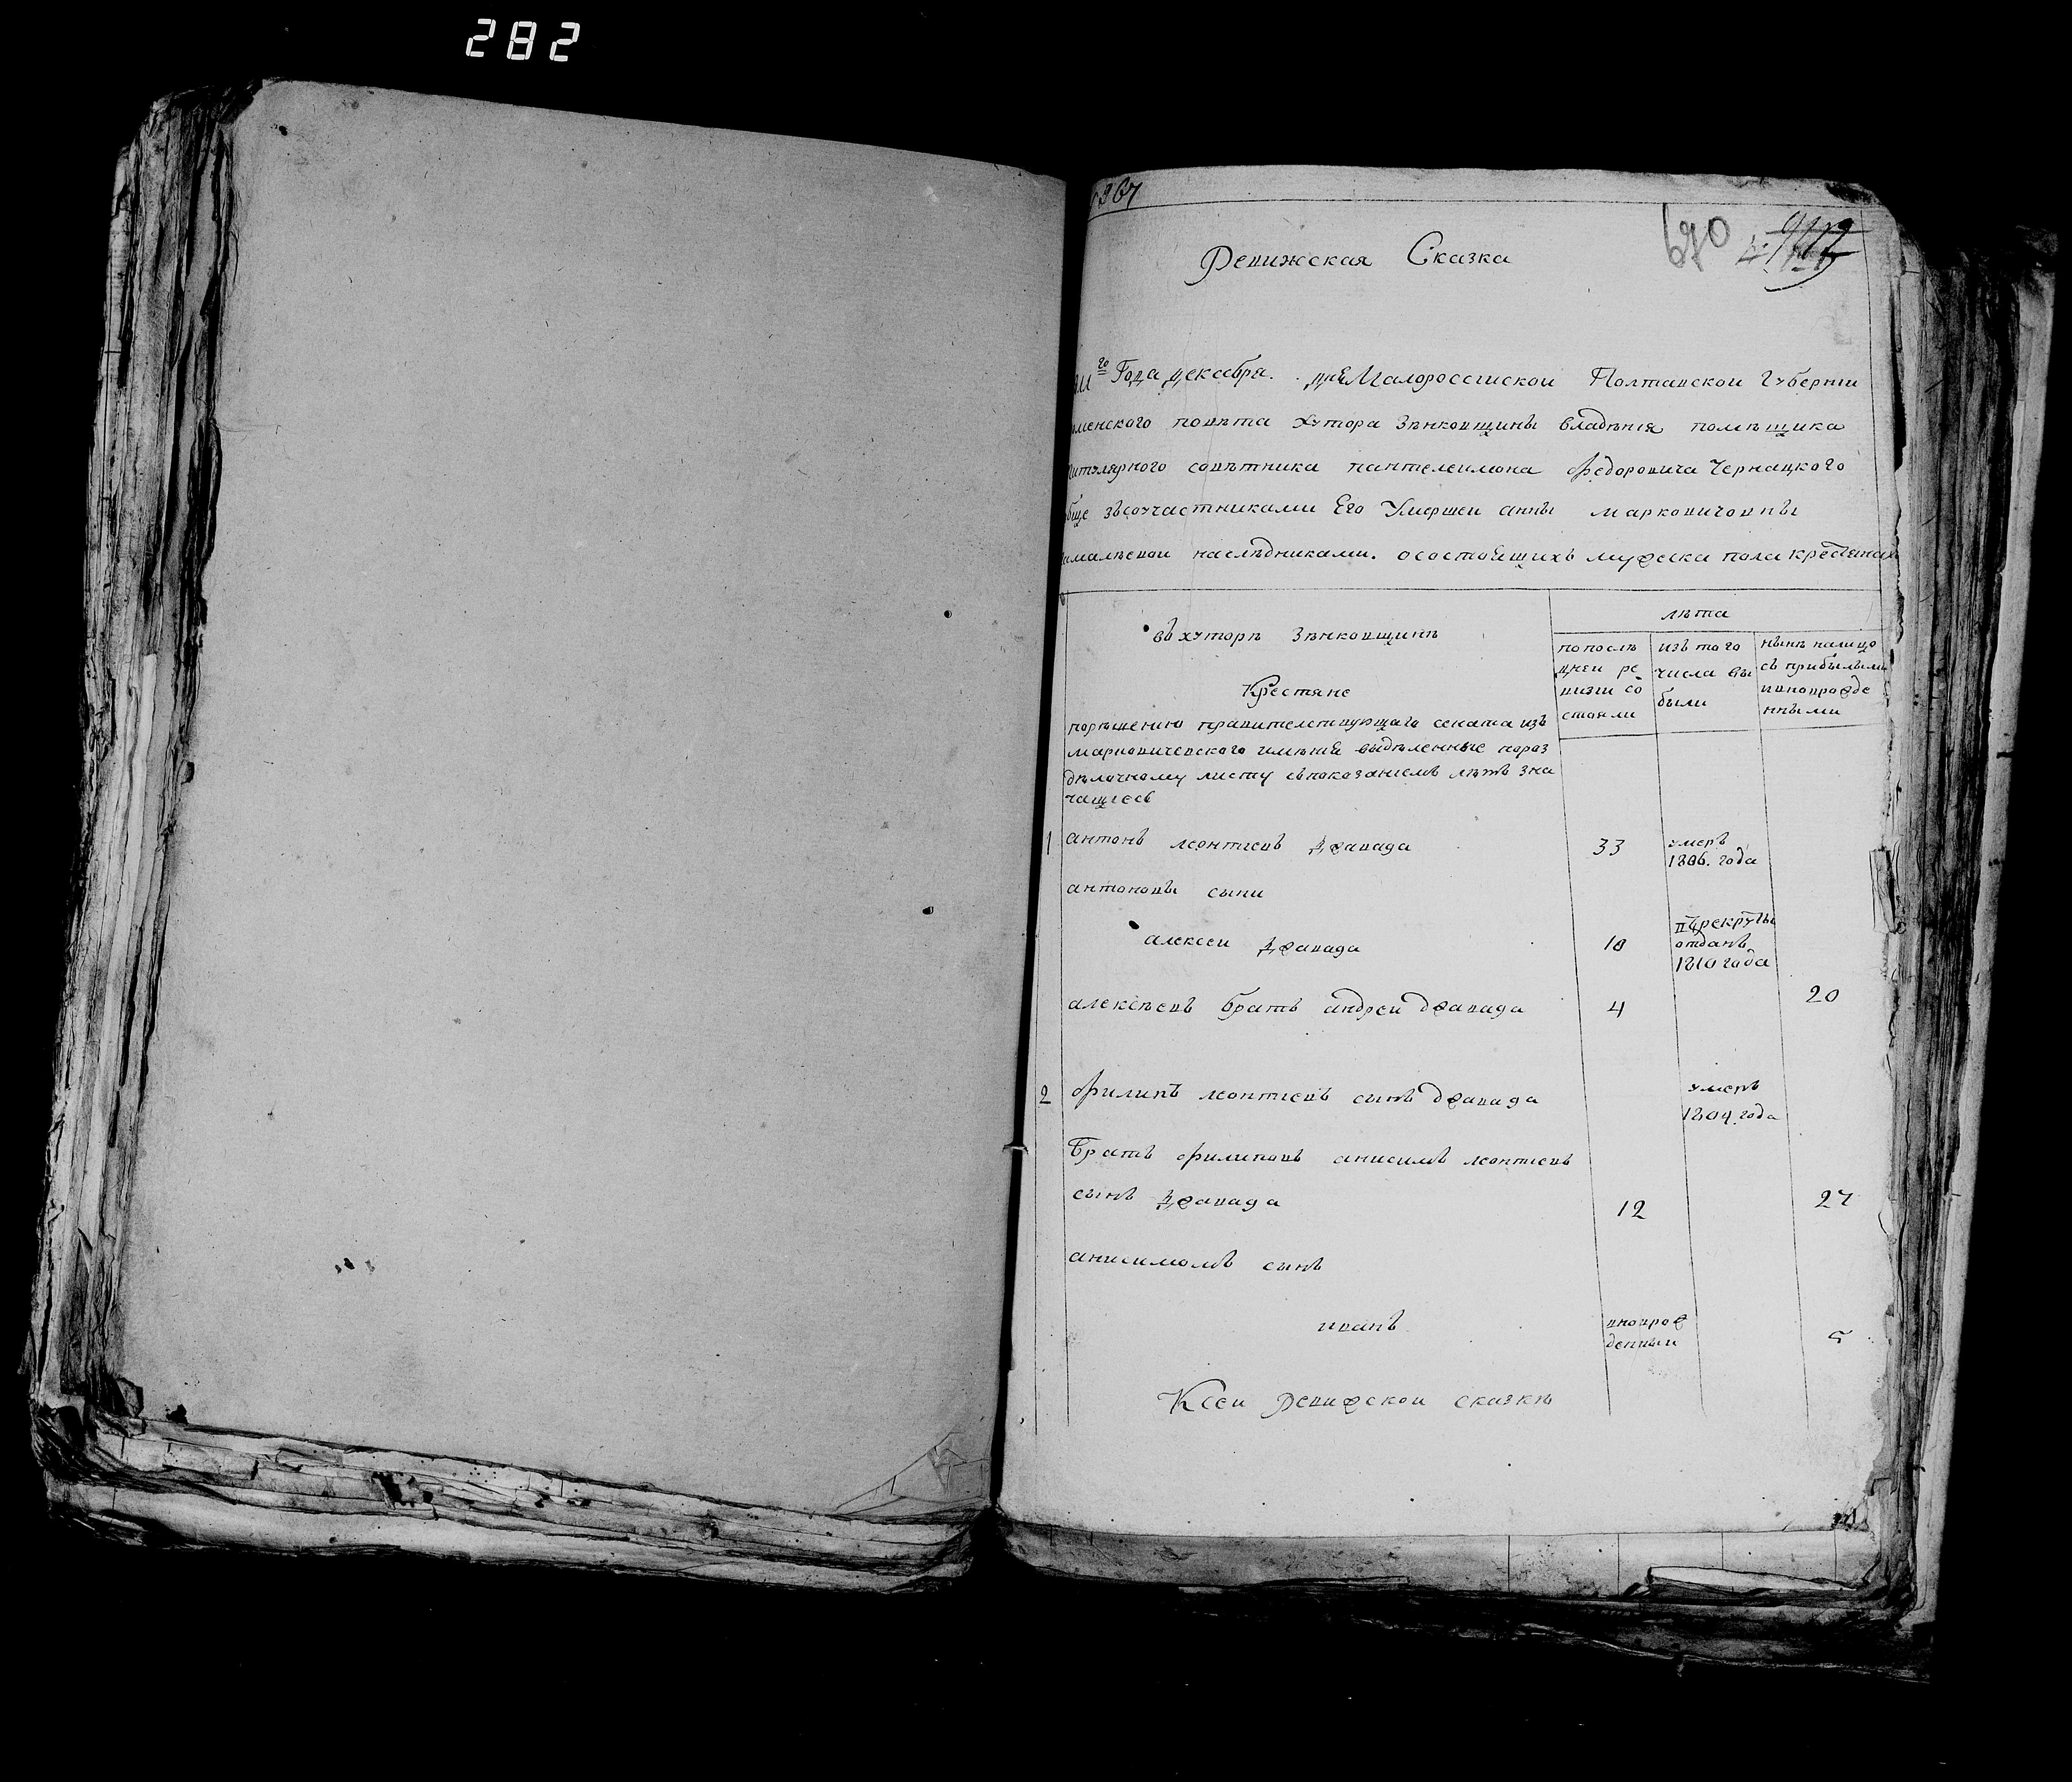 282
367
690
Ревижская Сказка
Года декабря. дня Малороссиской Полтавской Губернии
менского повѣта хутора Зѣнковщины владѣния помѣщика
титулярного совѣтника пантелеимона Федоровича Чернацкого
обще зъсоучастниками Его Умершей анны марковичовны
наслѣдниками. осостоящихъ мужеска пола крестянах
въ хуторѣ Зѣнковщинѣ
лѣта
по послѣ
дней ре
визии со
стояли
изъ того
числа вы
были
нынѣ налицо
съ прибылыми
ивноворожде
нными
Крестяне
порѣшению правителствующаго сената изъ
марковичевского имѣния выдѣленные пораз
дѣлочному листу сьпоказаниемъ лѣтъ зна
чащиесь
1 антонъ леонтиевъ Джавада 33 умеръ
1806. года
антоновы сыни
алексеи Джавада 18 въ рекруты
отданъ
1810 года
алексѣевъ братъ андреи джавада 4 20
2 филипъ леонтиевъ сынъ джавада умеръ
1804. года
Братъ филиповъ анисимъ леонтиевъ
сынъ Джавада 12 27
анисимовъ сынъ
иванъ вновърож
денныи 5
Ксеи ревижскои сказкѣ